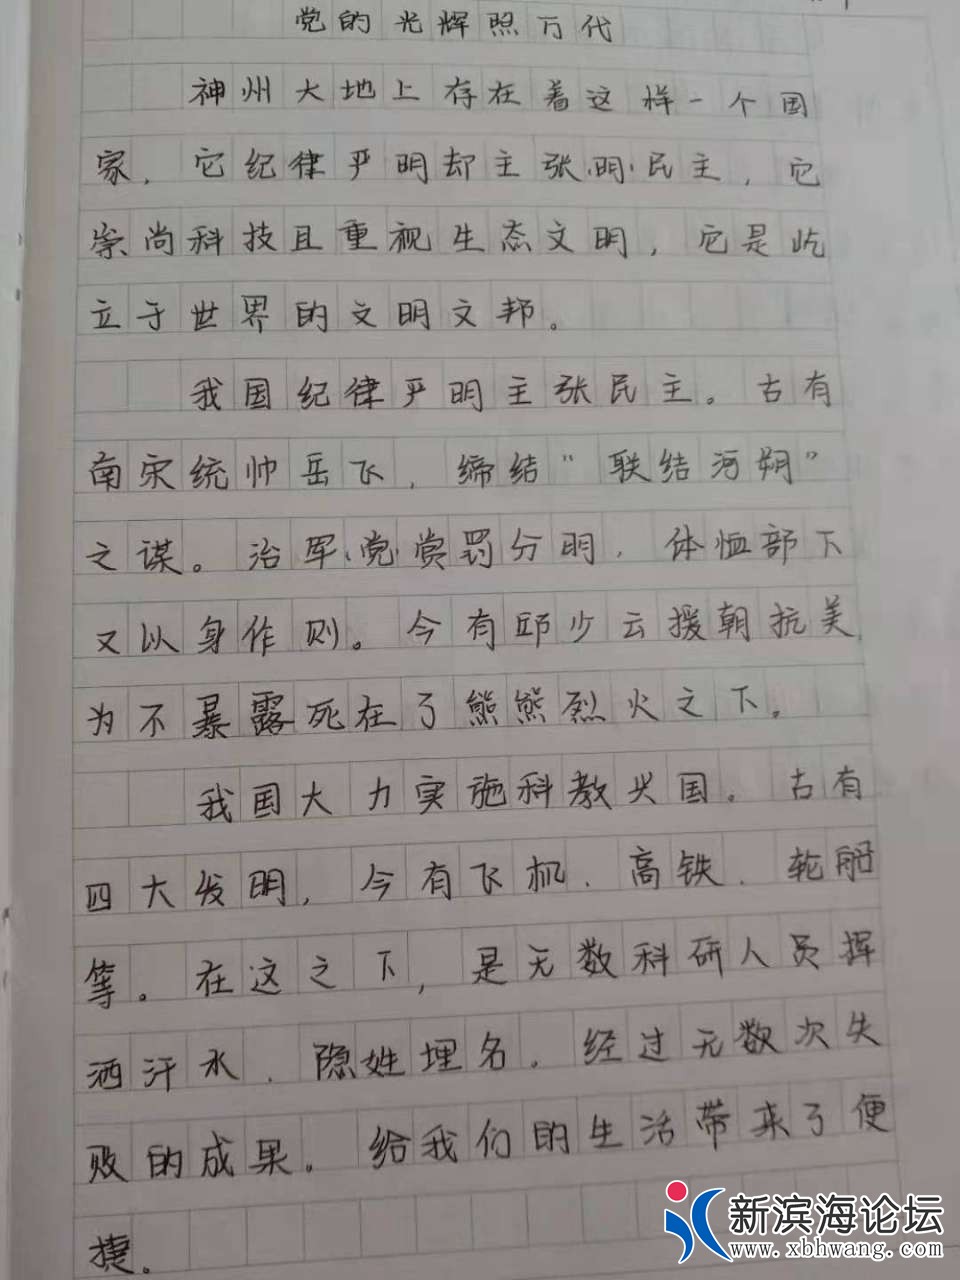 党的光辉照万代
神州大地上存在着这样一个国
家，它纪律严明却主张明民主，它
崇尚科技且重视生态文明，它是屹
立于世界的文明文邦。
我国纪律严明主张民主。古有
南宋统帅岳飞，缔结“联结河朔”
之谋。治军党赏罚分明，体恤部下
又以身作则。今有邱少云援朝抗美
为不暴露死在了熊熊烈火之下。
我国大力实施科教兴国。古有
四大发明，今有飞机、高铁、轮船
等。在这之下，是无数科研人员挥
洒汗水、隐姓埋名。经过无数次失
败的成果。给我们的生活带来了便
捷。
新滨海论坛
www.xbhwang.com